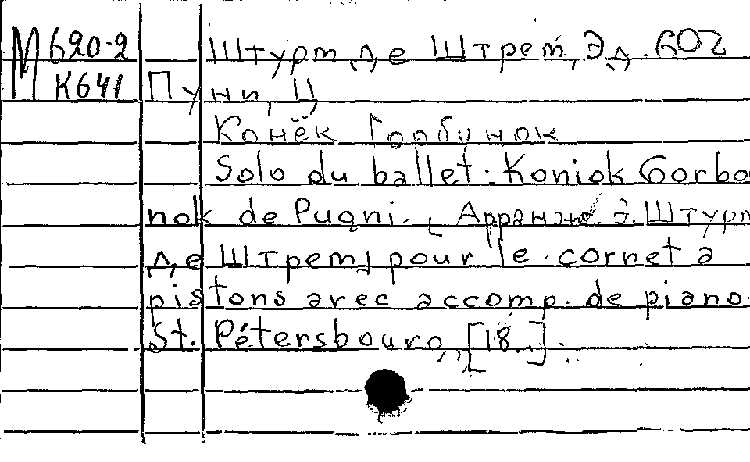 М 620-2 Штурм де Штрем, Эд. 602
К641 Пуни, Ц
Конёк Горбунок
Solo du ballet: Koniok Gorbo
nok de Pugni. [Арранж. Э. Штурм
де Штрем] pour le cornet à
pistons avec accomp. de piano
St. Pétersbourg, [18..].